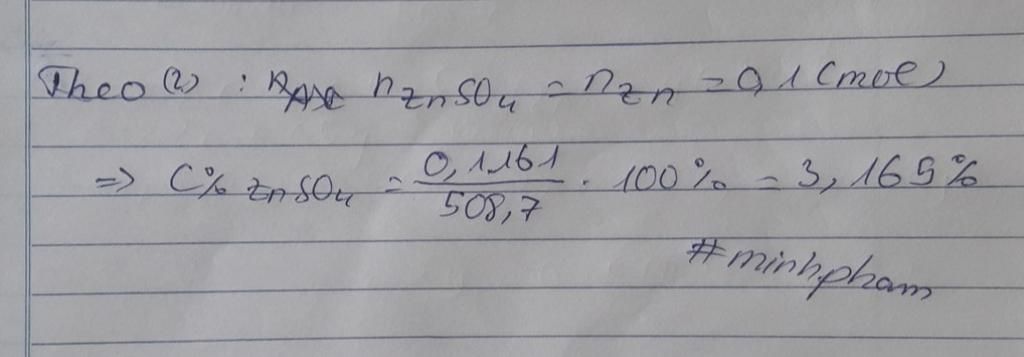 Theo (2) : n ZnSO4 = n Zn = 0,1 (mol)
=> C% ZnSO4 = 0,1.161 / 508,7 . 100% = 3,165%
#minhpham